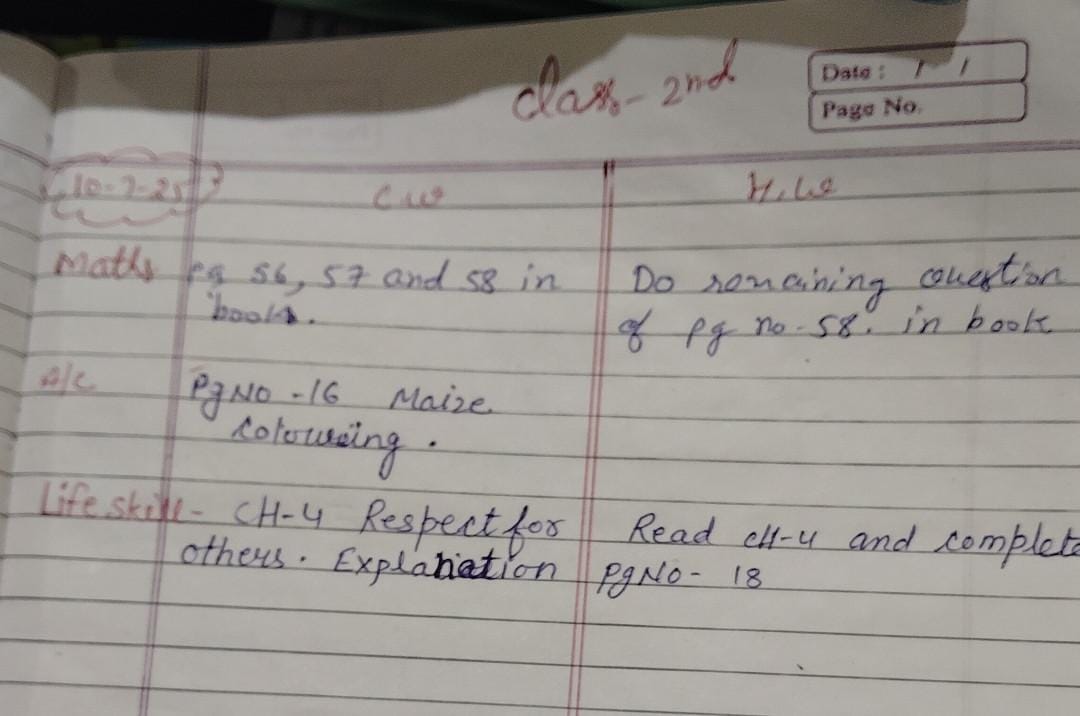 Class - 2nd
Date : / /
Page No.
10-7-25 C.W H.W
Maths pg 56, 57 and 58 in Do remaining question
book. of pg no - 58. in book
A/C Pg NO - 16 Maize
Colouring .
Life skill - CH-4 Respect for Read CH-4 and complete
others. Explanation Pg NO - 18